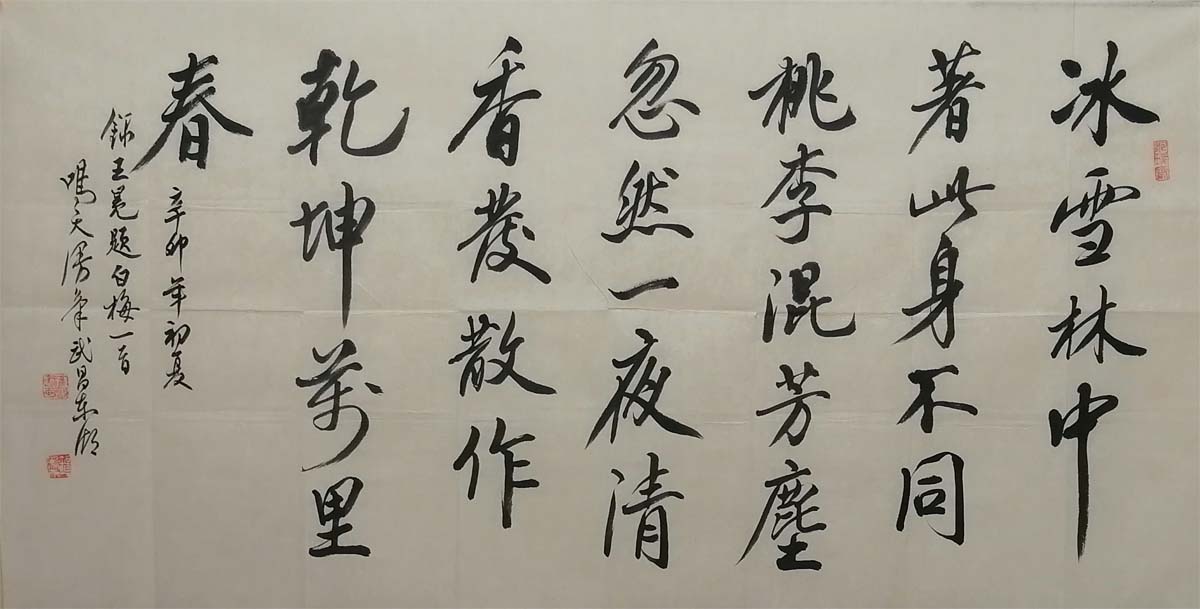 冰雪林中
著此身不同
桃李混芳塵
忽然一夜清
香發散作
乾坤萬里
春
辛卯年初夏
錄王冕題白梅一首
鳴天漫筆武昌东湖